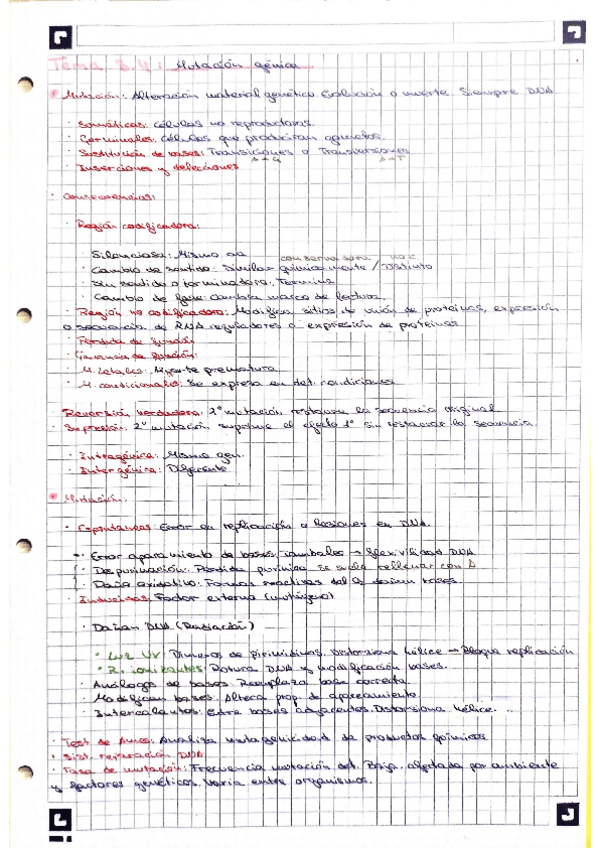 Tema 3.4: Mutación génica
Mutación: Alteración material genético. Evolución o muerte. Siempre DNA
· Somáticas: células no reproductoras.
· Germinales: células que producirán gametos.
· Sustitución de bases: Transiciones o Transversiones
A↔G A↔T
· Inserciones y delecciones
· Consecuencias:
· Región codificadora:
· Silenciosa: Mismo aa
conservadora no c
· Cambio de sentido: Similar químicamente / Distinto
· Sin sentido o terminadora: Termina
· Cambio de fase: Cambia marco de lectura.
· Región no codificadora: Modifica sitios de unión de proteínas, expresión
o secuencia de RNA reguladores o expresión de proteínas
· Pérdida de función
· Ganancia de función:
· M. Letales: Muerte prematura
· M. condicionales: Se expresa en det. condiciones
Reversión verdadera: 2º mutación restaura la secuencia original
· Supresión: 2º mutación suprime el efecto 1º sin restaurar la secuencia.
· Intragénica: Mismo gen.
· Intergénica: Diferente
Mutación.
· Espontáneas: Error en replicación o lesiones en DNA.
· Error apareamiento de bases: Tambaleo → flexivilidad DNA.
· Despurinación: Pérdida purínica se suele rellenar con A
· Daño oxidativo: Formas reactivas del O₂ dañan bases
· Inducidas: Factor externo (mutágeno)
· Dañan DNA (Radiación)
· Luz UV: Dímeros de pirimidinas. Distorsiona hélice → Bloquea replicación
· R. ionizantes: Rotura DNA y modificación bases.
· Análogos de bases: Reemplaza base correcta.
· Modifican bases: Altera prop. de apareamiento
· Intercalantes: Entre bases adyacentes. Distorsiona hélice.
· Test de Ames: Analiza mutagenicidad de productos químicos
· Sist. reparación DNA
· Tasa de mutación: Frecuencia mutación det. Baja. afectada por ambiente
y factores genéticos. Varía entre organismos.